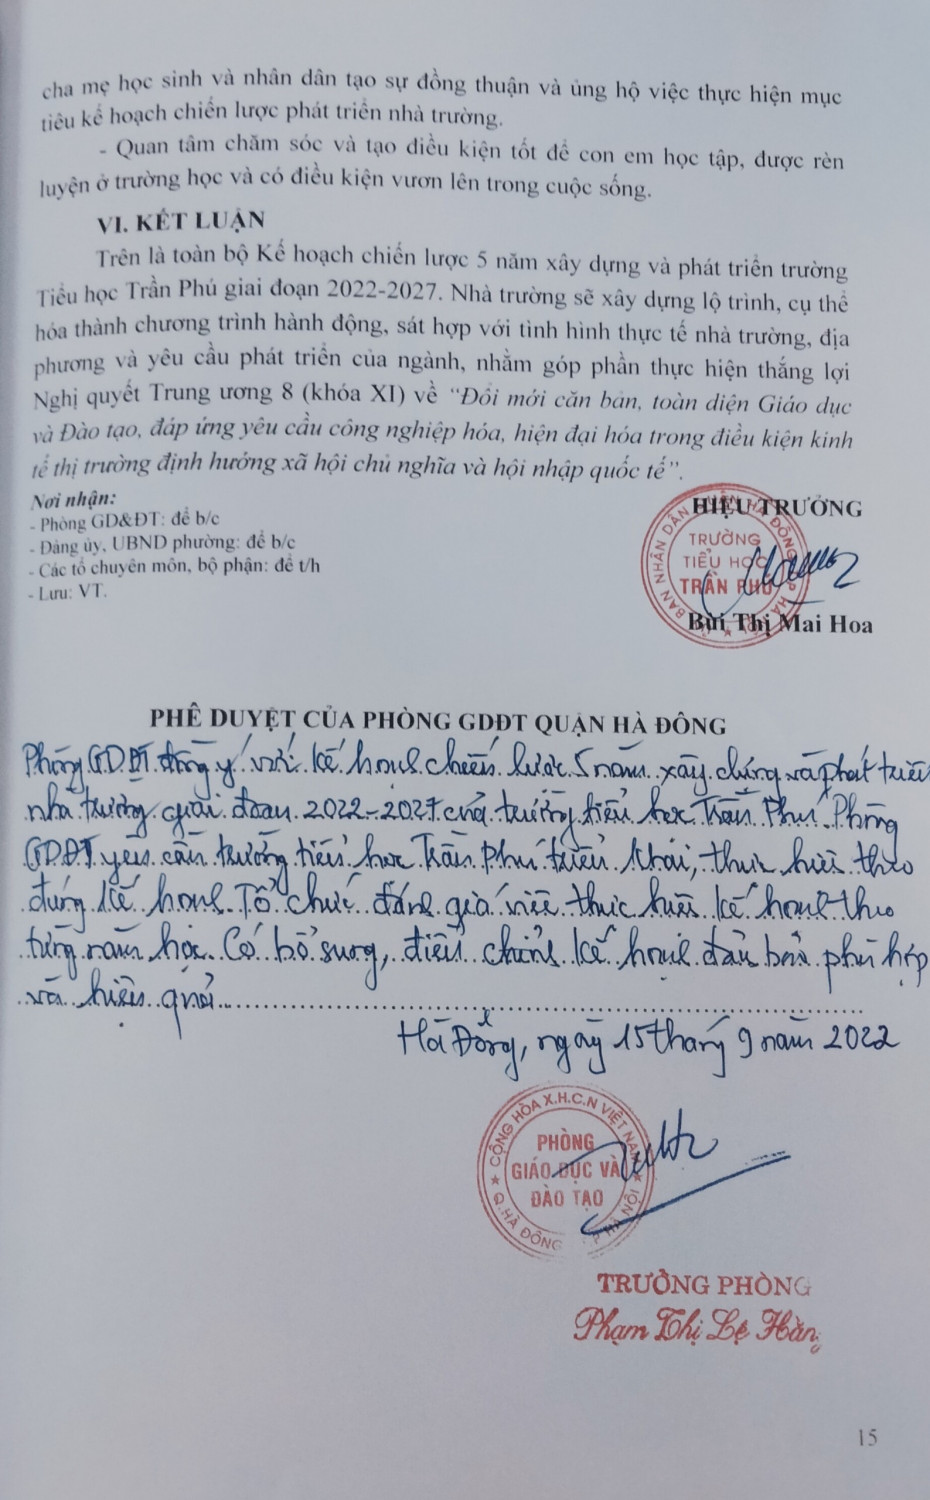 cha mẹ học sinh và nhân dân tạo sự đồng thuận và ủng hộ việc thực hiện mục
tiêu kế hoạch chiến lược phát triển nhà trường.
- Quan tâm chăm sóc và tạo điều kiện tốt để con em học tập, được rèn
luyện ở trường học và có điều kiện vươn lên trong cuộc sống.
VI. KẾT LUẬN
Trên là toàn bộ Kế hoạch chiến lược 5 năm xây dựng và phát triển trường
Tiểu học Trần Phú giai đoạn 2022-2027. Nhà trường sẽ xây dựng lộ trình, cụ thể
hóa thành chương trình hành động, sát hợp với tình hình thực tế nhà trường, địa
phương và yêu cầu phát triển của ngành, nhằm góp phần thực hiện thắng lợi
Nghị quyết Trung ương 8 (khóa XI) về "Đổi mới căn bản, toàn diện Giáo dục
và Đào tạo, đáp ứng yêu cầu công nghiệp hóa, hiện đại hóa trong điều kiện kinh
tế thị trường định hướng xã hội chủ nghĩa và hội nhập quốc tế".
Nơi nhận:
- Phòng GD&ĐT: để b/c
- Đảng ủy, UBND phường: để b/c
- Các tổ chuyên môn, bộ phận: để t/h
- Lưu: VT.
HIỆU TRƯỞNG
ỦY BAN NHÂN DÂN QUẬN HÀ ĐÔNG TP HÀ NỘI
TRƯỜNG
TIỂU HỌC
TRẦN PHÚ
Bùi Thị Mai Hoa
PHÊ DUYỆT CỦA PHÒNG GDĐT QUẬN HÀ ĐÔNG
Phòng GDĐT đồng ý với kế hoạch chiến lược 5 năm xây dựng và phát triển
nhà trường giai đoạn 2022-2027 của trường tiểu học Trần Phú. Phòng
GDĐT yêu cầu trường tiểu học Trần Phú triển khai, thực hiện theo
đúng kế hoạch. Tổ chức đánh giá việc thực hiện kế hoạch theo
từng năm học. Có bổ sung, điều chỉnh kế hoạch đảm bảo phù hợp
và hiệu quả
Hà Đông, ngày 15 tháng 9 năm 2022
CỘNG HÒA X.H.C.N VIỆT NAM
PHÒNG
GIÁO DỤC VÀ
ĐÀO TẠO
Q.HÀ ĐÔNG TP HÀ NỘI
TRƯỞNG PHÒNG
Phạm Thị Lệ Hằng
15